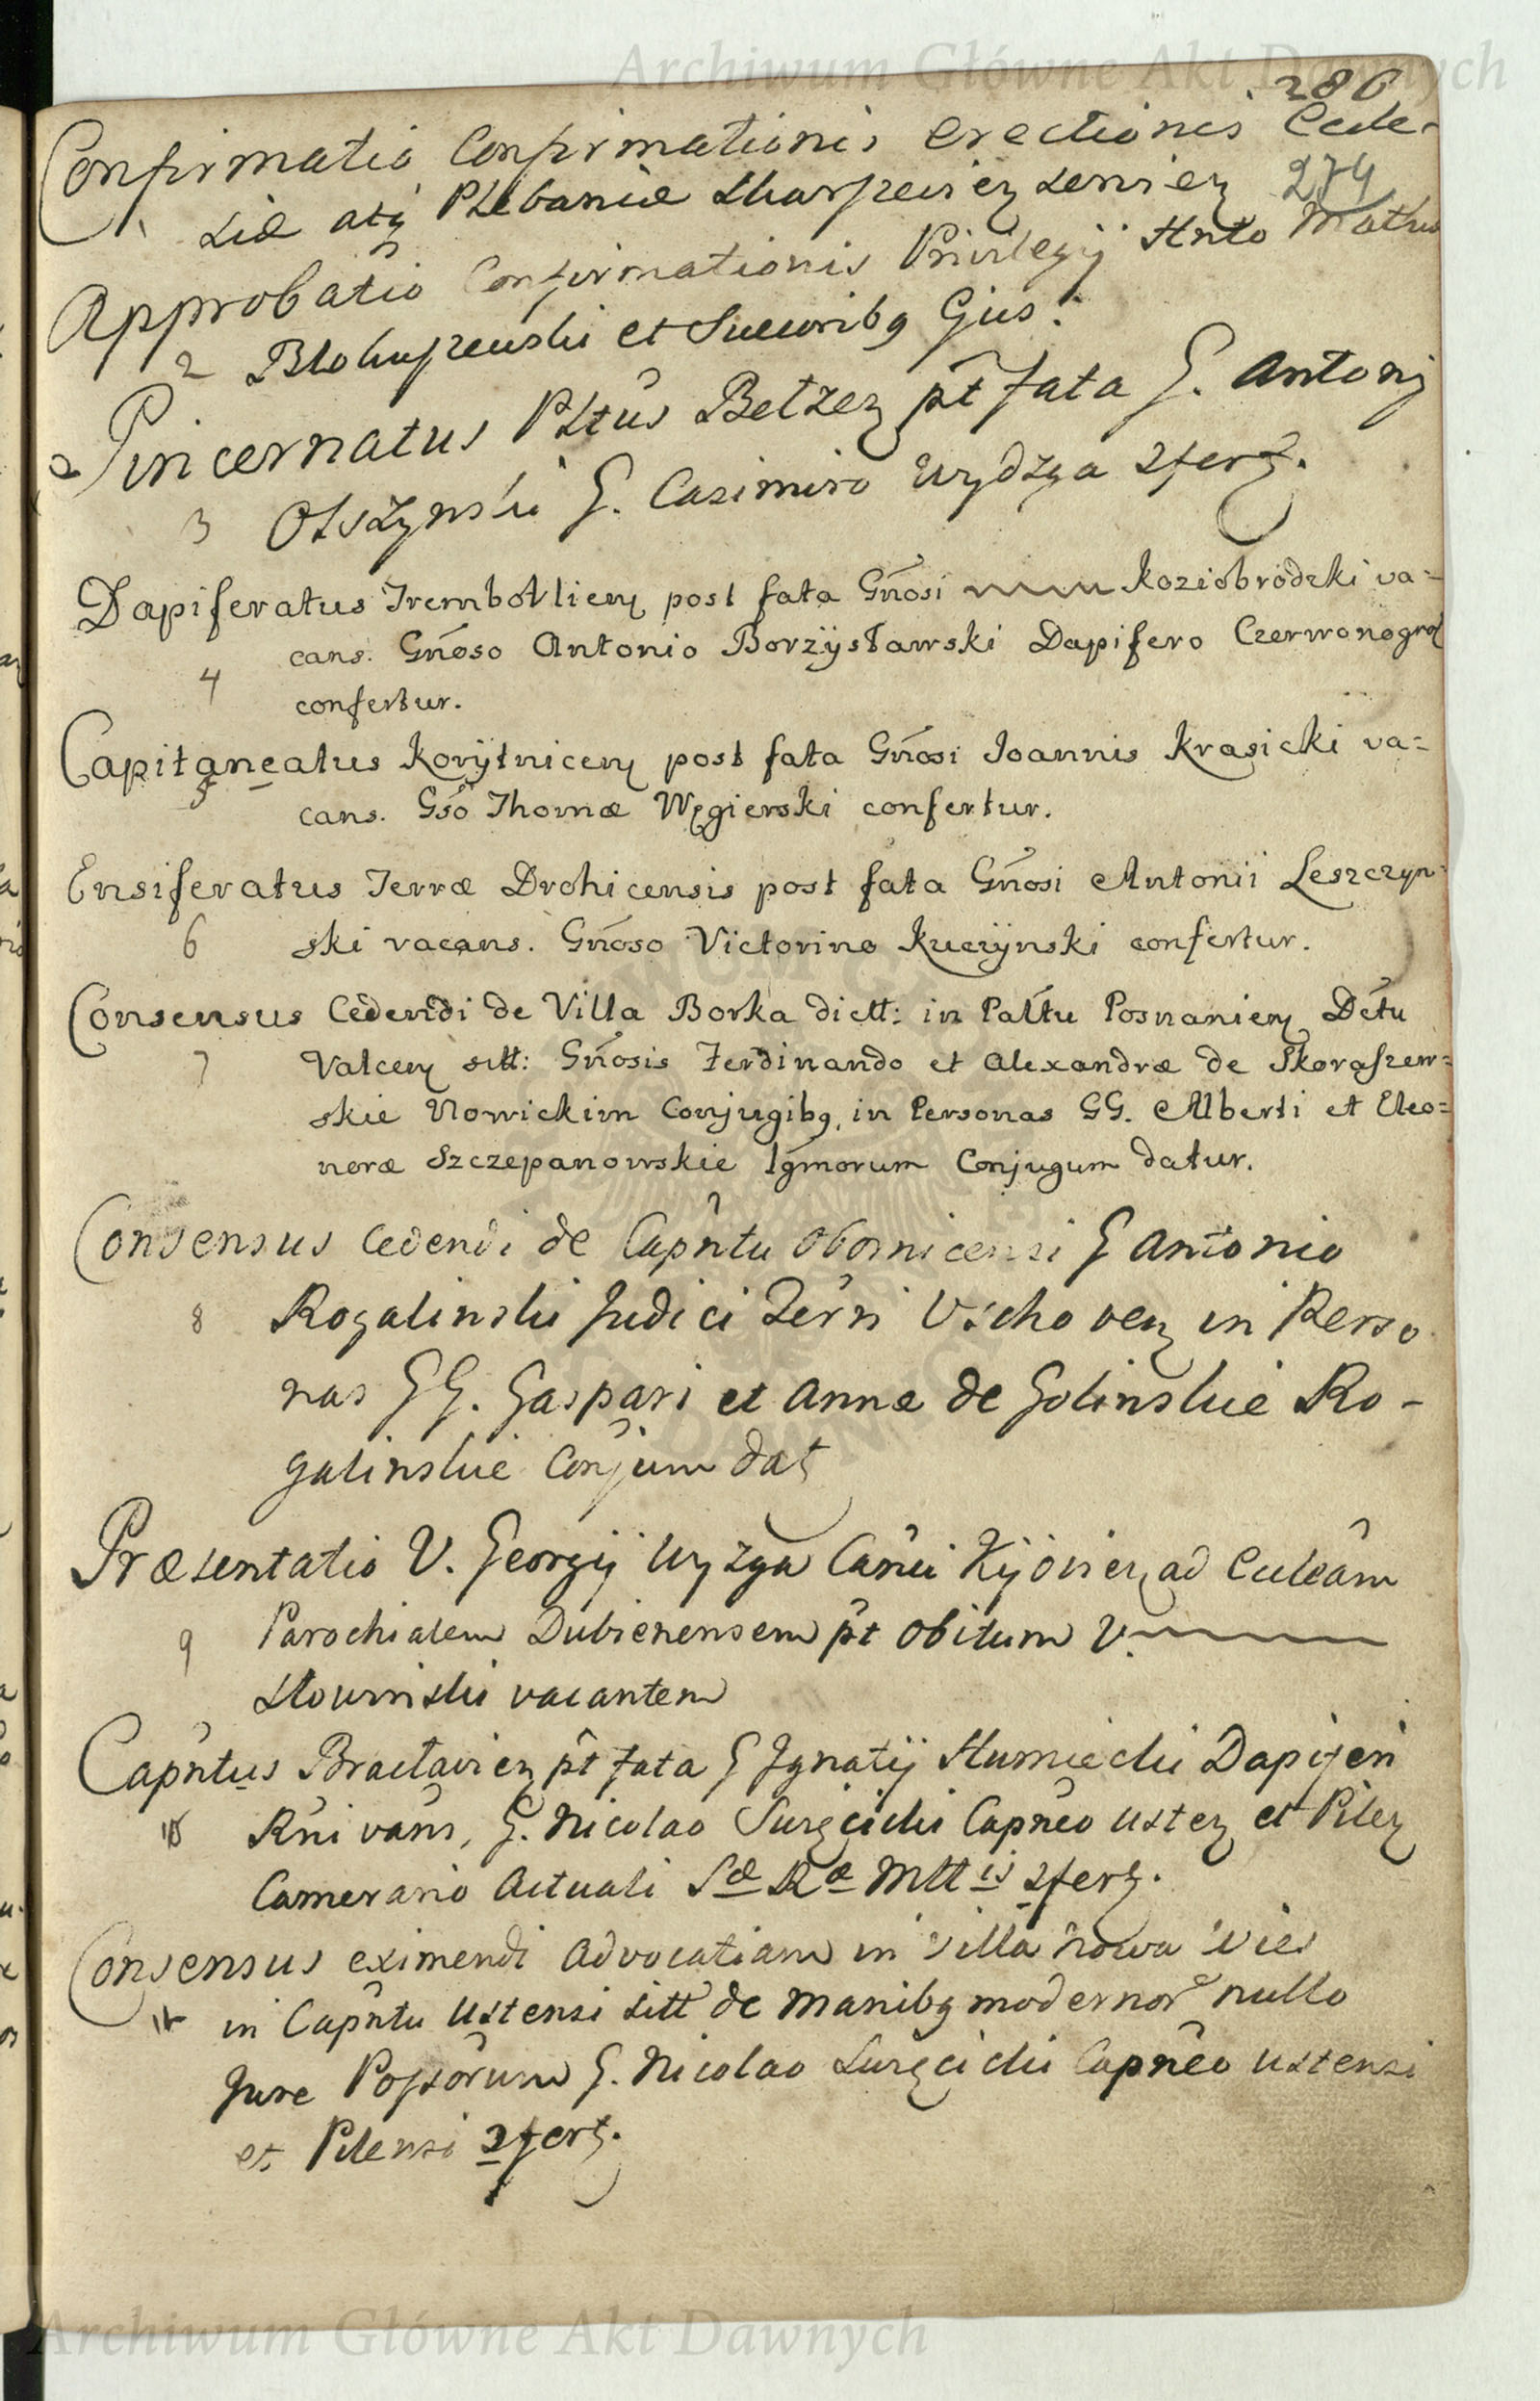 Archiwum Główne Akt Dawnych
286
Confirmatio Confirmationis erectionis Eccle-
274
siæ atq Plebaniæ
1
Approbatio Confirmationis Privilegij
2 et Successoribq Ejus.
Pincernatus Pltus Betzen pt fata G. Antonij
3 Olszynski G. Casimiro Wydzga 2fert.
Dapiferatus Trembovlien post fata Gnosi Koziobrodzki va=
cans. Gnoso Antonio Borzysławski Dapifero Czerwonogrod
4
confertur.
Capitaneatus Korytnicen post fata Gnosi Joannis Krasicki va=
5
cans. Gso Thomæ Węgierski confertur.
Ensiferatus Terræ Drohicensis post fata Gnosi Antonii Leszczyn=
6 ski vacans. Gnoso Victorino Kuczynski confertur.
Consensus Cedendi de Villa Borka dictt: in Paltu Posnanien Dctu
7 Valcen sitt: Gnosis Ferdinando et Alexandræ de Skoraszew=
skie Nowickim Conjugibq, in Personas GG. Alberti et Eleo=
noræ Szczepanowskie Igmorum Conjugum datur.
Consensus cedendi de Capntu Obornicensi G Antonio
8 Rogalinski Judici Terri Vschoven in Perso
nas GG. Gaspari et Annæ de Golinskie Ro-
galinskie Conjum dat
Præsentatio V. Georgij Wyzga Canci Kijovien ad Eccleam
9 Parochialem Dubienensem pt obitum V.
Słowinski vacantem
Capntus Braclavien pt fata G Ignatij Humiecki Dapiferi
10 Rni vans, G. Nicolao Swięcicki Capneo Usten et Pilen
Camerario Actuali Sæ Ræ Mttis 2fert.
Consensus eximendi Advocatiam in Villa Nowa Wies
11 in Capntu Ustensi sitt de manibq modernor nullo
Jure Possorum G. Nicolao Swięcicki Capneo Ustensi
et Pilensi 2fert.
Archiwum Główne Akt Dawnych